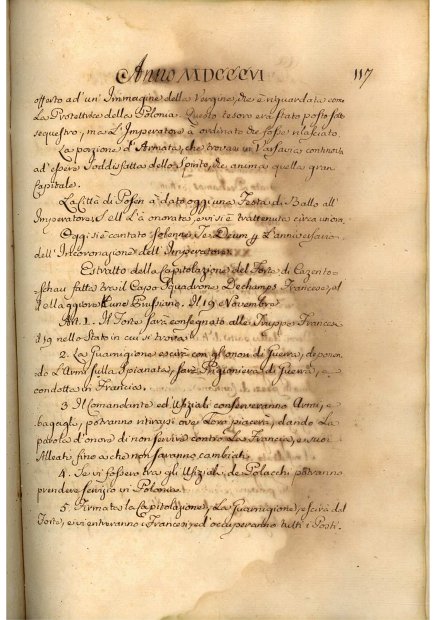 Anno MDCCCVI 117
offerto ad un' Immagine della Vergine, che è riguardata come
La Protettrice della Polonia. Questo tesoro era stato posto sotto
sequestro, ma L'Imperatore à ordinato che fosse rilasciato.
La porzione d'Armata, che trovasi in Varsavia continova
ad' essere soddisfatta dello Spirito, che anima quella gran
Capitale.
La Città di Posen à dato oggi una Festa di Ballo all'
Imperatore; Ell' L'à onorata, e vi si è trattenuto circa un'ora.
Oggi si è cantato solenne Te Deum p L'anniversario
dell' Incoronazione dell' Imperatore.
Estratto della Capitolazione del Forte di
schau fatta tra il Capo Squadrone Dechamps Francese, ed
il Maggiore Prussiano. Il 19 Novembre.
Art. 1. Il Forte sarà consegnato alle Truppe Francesi
il 19 nello Stato in cui si trova.
2. La Guarnigione escirà con gli onori di Guerra, deporrà
do L'Armi sulla Spianata, sarà Prigioniera di Guerra, e
condotta in Francia.
3. Il Comandante ed Ufiziali conserveranno Armi, e
bagagli, potranno ritirarsi ove Loro piacerà, dando La
parola d'onore di non servire contro La Francia, e suoi
Alleati, fino a che non saranno cambiati.
4. Se vi fossero tra gli Ufiziali, de Polacchi potranno
prendere servizio in Polonia.
5. Firmata la Capitolazione, La Guarnigione, escirà dal
Forte, e vi entreranno i Francesi, ed occuperanno tutti i Posti.